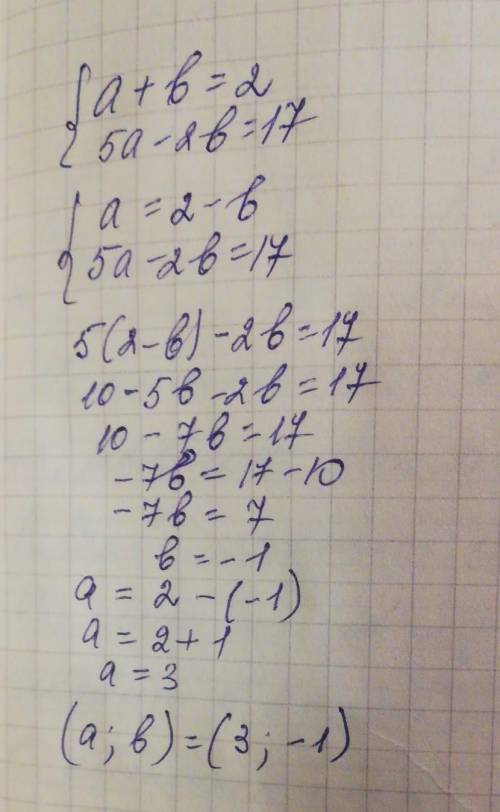 { a + b = 2
5a - 2b = 17
{ a = 2 - b
5a - 2b = 17
5(2 - b) - 2b = 17
10 - 5b - 2b = 17
10 - 7b = 17
-7b = 17 - 10
-7b = 7
b = -1
a = 2 - (-1)
a = 2 + 1
a = 3
(a; b) = (3; -1)